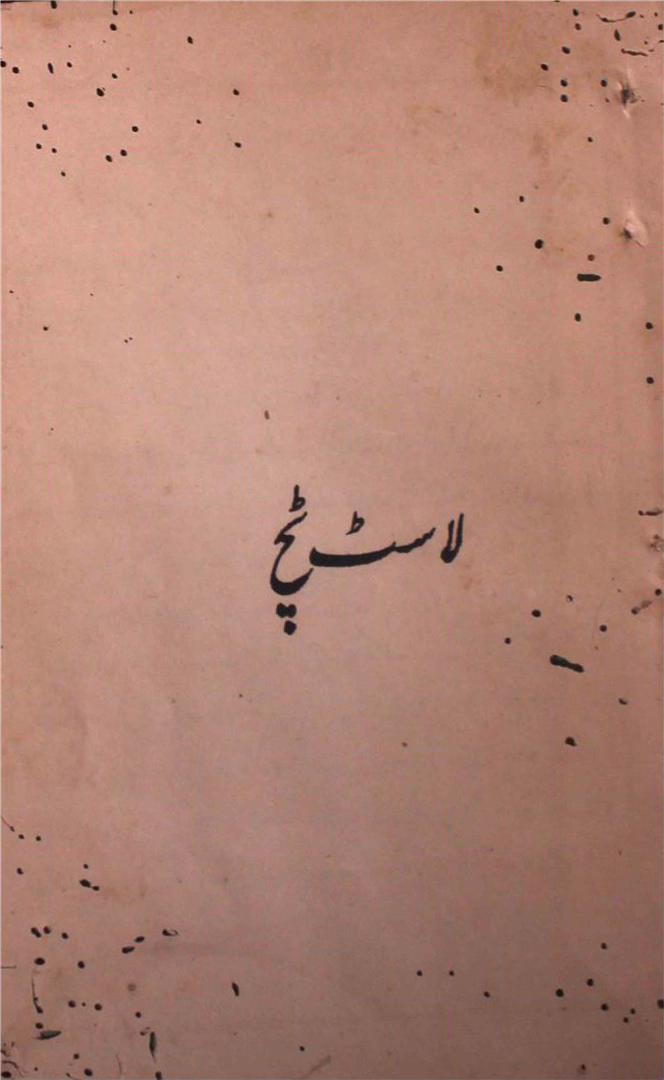 لاسٹ ٹچ